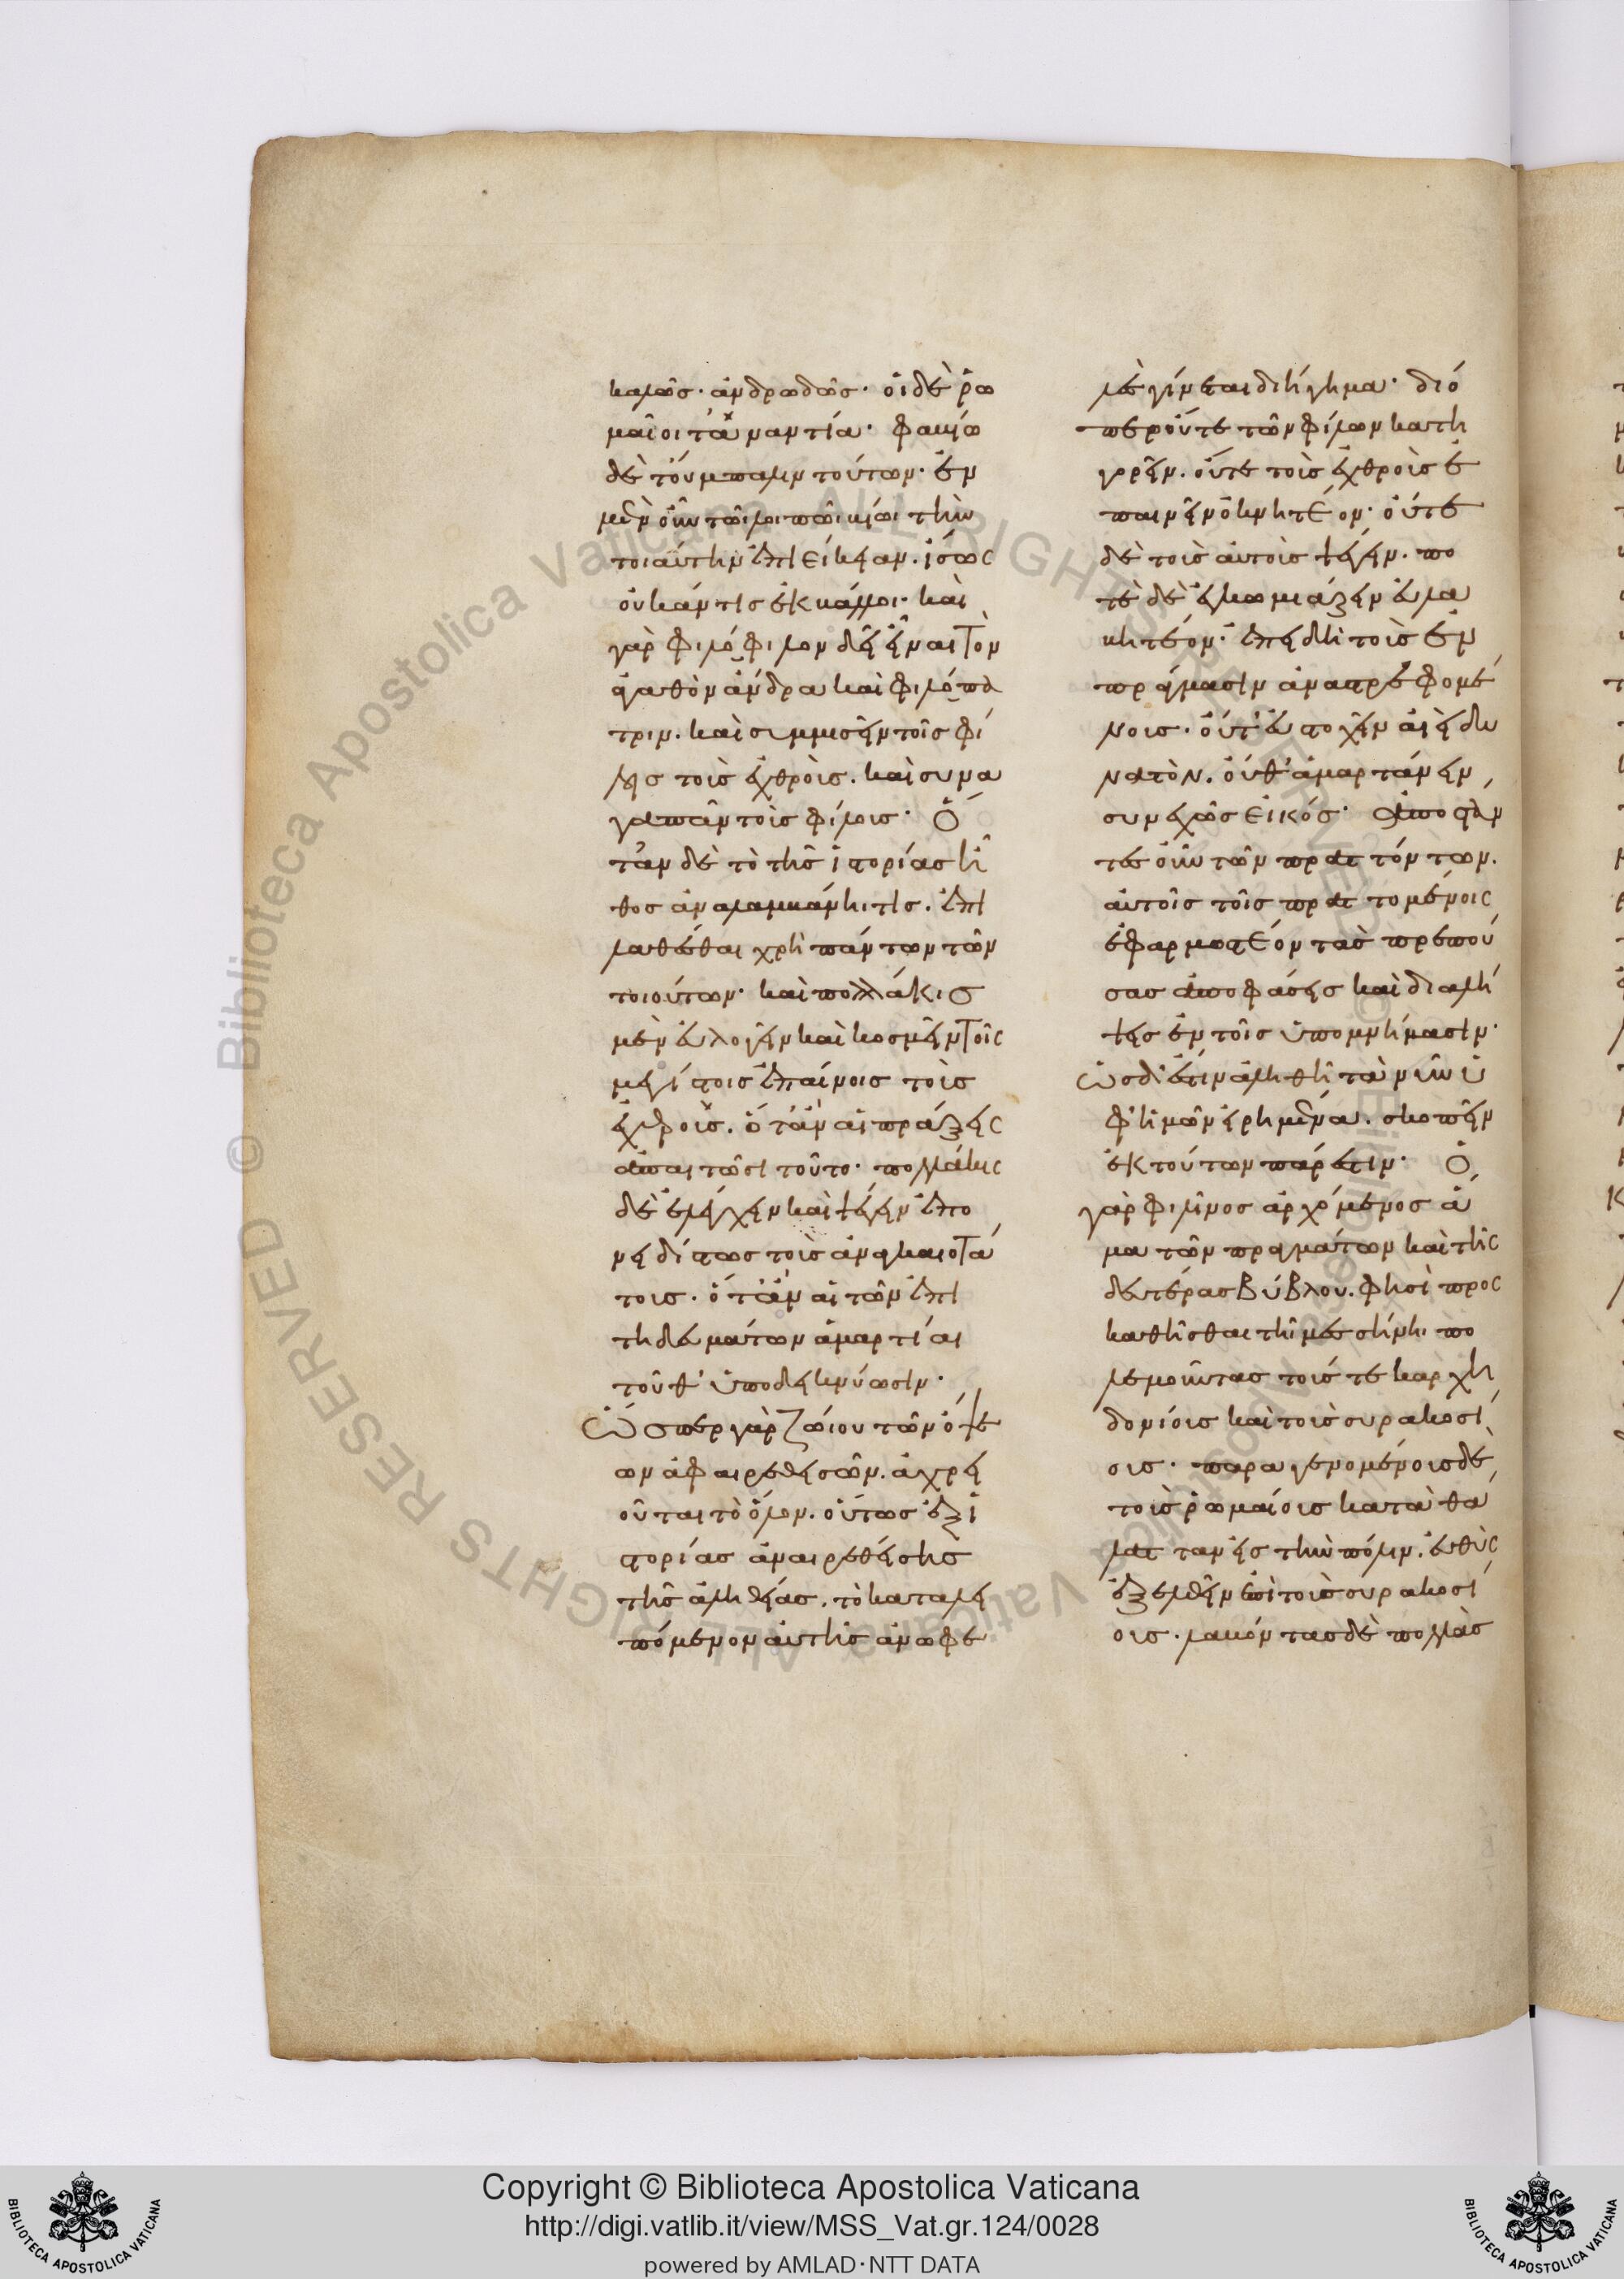 καλῶς· ἀνδρωδῶς· οἱ δὲ ρω
μαῖοι τἀναντία· φαβίω
δὲ τοὔμπαλιν τούτων· ἐν
μὲν οὖν τῶι λοιπῶι βίωι τὴν
τοιαύτην ἐπιείκειαν· ἴσως
οὐκ ἄν τις ἐκβάλλοι· καὶ
γὰρ φιλόφιλον δεῖ εἶναι τὸν
ἀγαθὸν ἄνδρα καὶ φιλόπα
τριν· καὶ συμμισεῖν τοῖς φί
λοις τοὺς ἐχθρούς· καὶ συνα
γαπᾶν τοὺς φίλους· Ὅ
ταν δὲ τὸ τῆς ἱστορίας ἦ
θος ἀναλαμβάνηι τις· ἐπι
λαθέσθαι χρὴ πάντων τῶν
τοιούτων· καὶ πολλάκις
μὲν εὐλογεῖν καὶ κοσμεῖν τοῖς
μεγίστοις ἐπαίνοις τοὺς
ἐχθρούς· ὅταν αἱ πράξεις
ἀπαιτῶσι τοῦτο· πολλάκις
δὲ ἐλέγχειν καὶ ψέγειν ἐπο
νειδίστως τοὺς ἀναγκαιοτά
τους· ὅταν αἱ τῶν ἐπι
τηδευμάτων ἁμαρτίαι
τοῦθ' ὑποδεικνύωσιν·
Ὥσπερ γὰρ ζώιου τῶν ὄψε
ων ἀφαιρεθεισῶν· ἀχρει
οῦται τὸ ὅλον· οὕτως ἐξ ἱ
στορίας ἀναιρεθείσης
τῆς ἀληθείας· τὸ καταλει
πόμενον αὐτῆς ἀνωφε
λὲς γίνεται διήγημα· διό
περ οὔτε τῶν φίλων κατη
γορεῖν· οὔτε τοὺς ἐχθροὺς ἐ
παινεῖν ὀκνητέον· οὔτε
δὲ τοὺς αὐτοὺς ψέγειν· πο
τὲ δὲ ἐγκωμιάζειν εὐλα
βητέον· ἐπειδὴ τοὺς ἐν
πράγμασιν ἀναστρεφομέ
νους· οὔτ' εὐστοχεῖν αἰεὶ δυ
νατὸν· οὔθ' ἁμαρτάνειν
συνεχῶς εἰκός· ἀποστάν
τες οὖν τῶν πραττόντων·
αὐτοῖς τοῖς πραττομένοις
ἐφαρμοστέον τὰς πρεπού
σας ἀποφάσεις καὶ διαλή
ψεις ἐν τοῖς ὑπομνήμασιν·
Ὡς δ' ἔστιν ἀληθῆ τὰ νῦν ὑ
φ' ἡμῶν εἰρημένα· σκοπεῖν
ἐκ τούτων πάρεστιν· Ὁ
γὰρ φιλῖνος ἀρχόμενος ἅ
μα τῶν πραγμάτων καὶ τῆς
δευτέρας βύβλου· φησὶ προς
καθῆσθαι τῆι μεσσήνηι πο
λεμοῦντας τούς τε καρχη
δονίους καὶ τοὺς συρακοσί
ους· παραγενομένους δὲ
τοὺς ρωμαίους κατὰ θά
λατταν εἰς τὴν πόλιν· εὐθὺς
ἐξελθεῖν ἐπὶ τοὺς συρακοσί
ους· λαβόντας δὲ πολλὰς
Copyright © Biblioteca Apostolica Vaticana
http://digi.vatlib.it/view/MSS_Vat.gr.124/0028
powered by AMLAD·NTT DATA